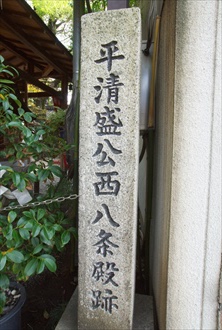 平清盛公西八条殿跡